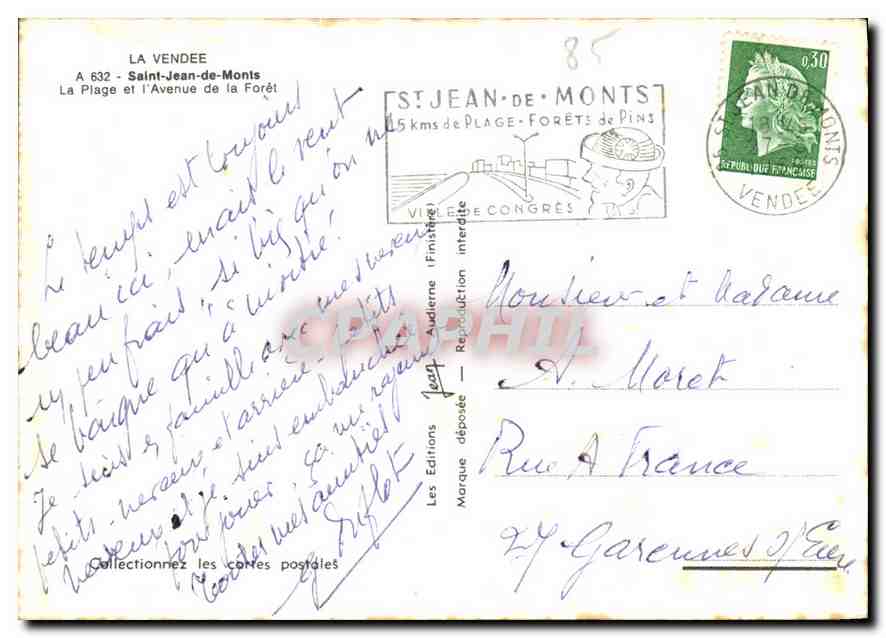 LA VENDEE
A 632 - Saint-Jean-de-Monts
La Plage et l'Avenue de la Forêt
85
ST JEAN • DE • MONTS
15 kms de PLAGE • FORÊTS de PINS
VILLE DE CONGRÈS
0,30
POSTES
REPUBLIQUE FRANÇAISE
ST JEAN-DE-MONTS
VENDEE
Le temps est toujours
beau ici, mais le vent
un peu frais, si bien qu'on ne
se baigne qu'à moitié!
Je suis en famille avec mes neveux
petits-neveux et arrière-petits
neveux et je suis embauchée
pour jouer, ça me rajeunit
Toutes mes amitiés
Les Editions Jean Audierne (Finistère)
Marque déposée — Reproduction interdite
CPAPHIL
Monsieur et Madame
A. Moret
Rue A France
27 Garennes s/Eure
Collectionnez les cartes postales